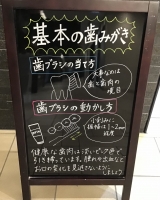 基本の歯みがき
歯ブラシの当て方
大事なのは
歯と歯肉の
境目
歯ブラシの動かし方
小刻みに
振幅は1～2mm
程度
健康な歯肉はうすいピンク色で
引き締っています。腫れや出血など
お口の変化を見逃さないように
しましょう